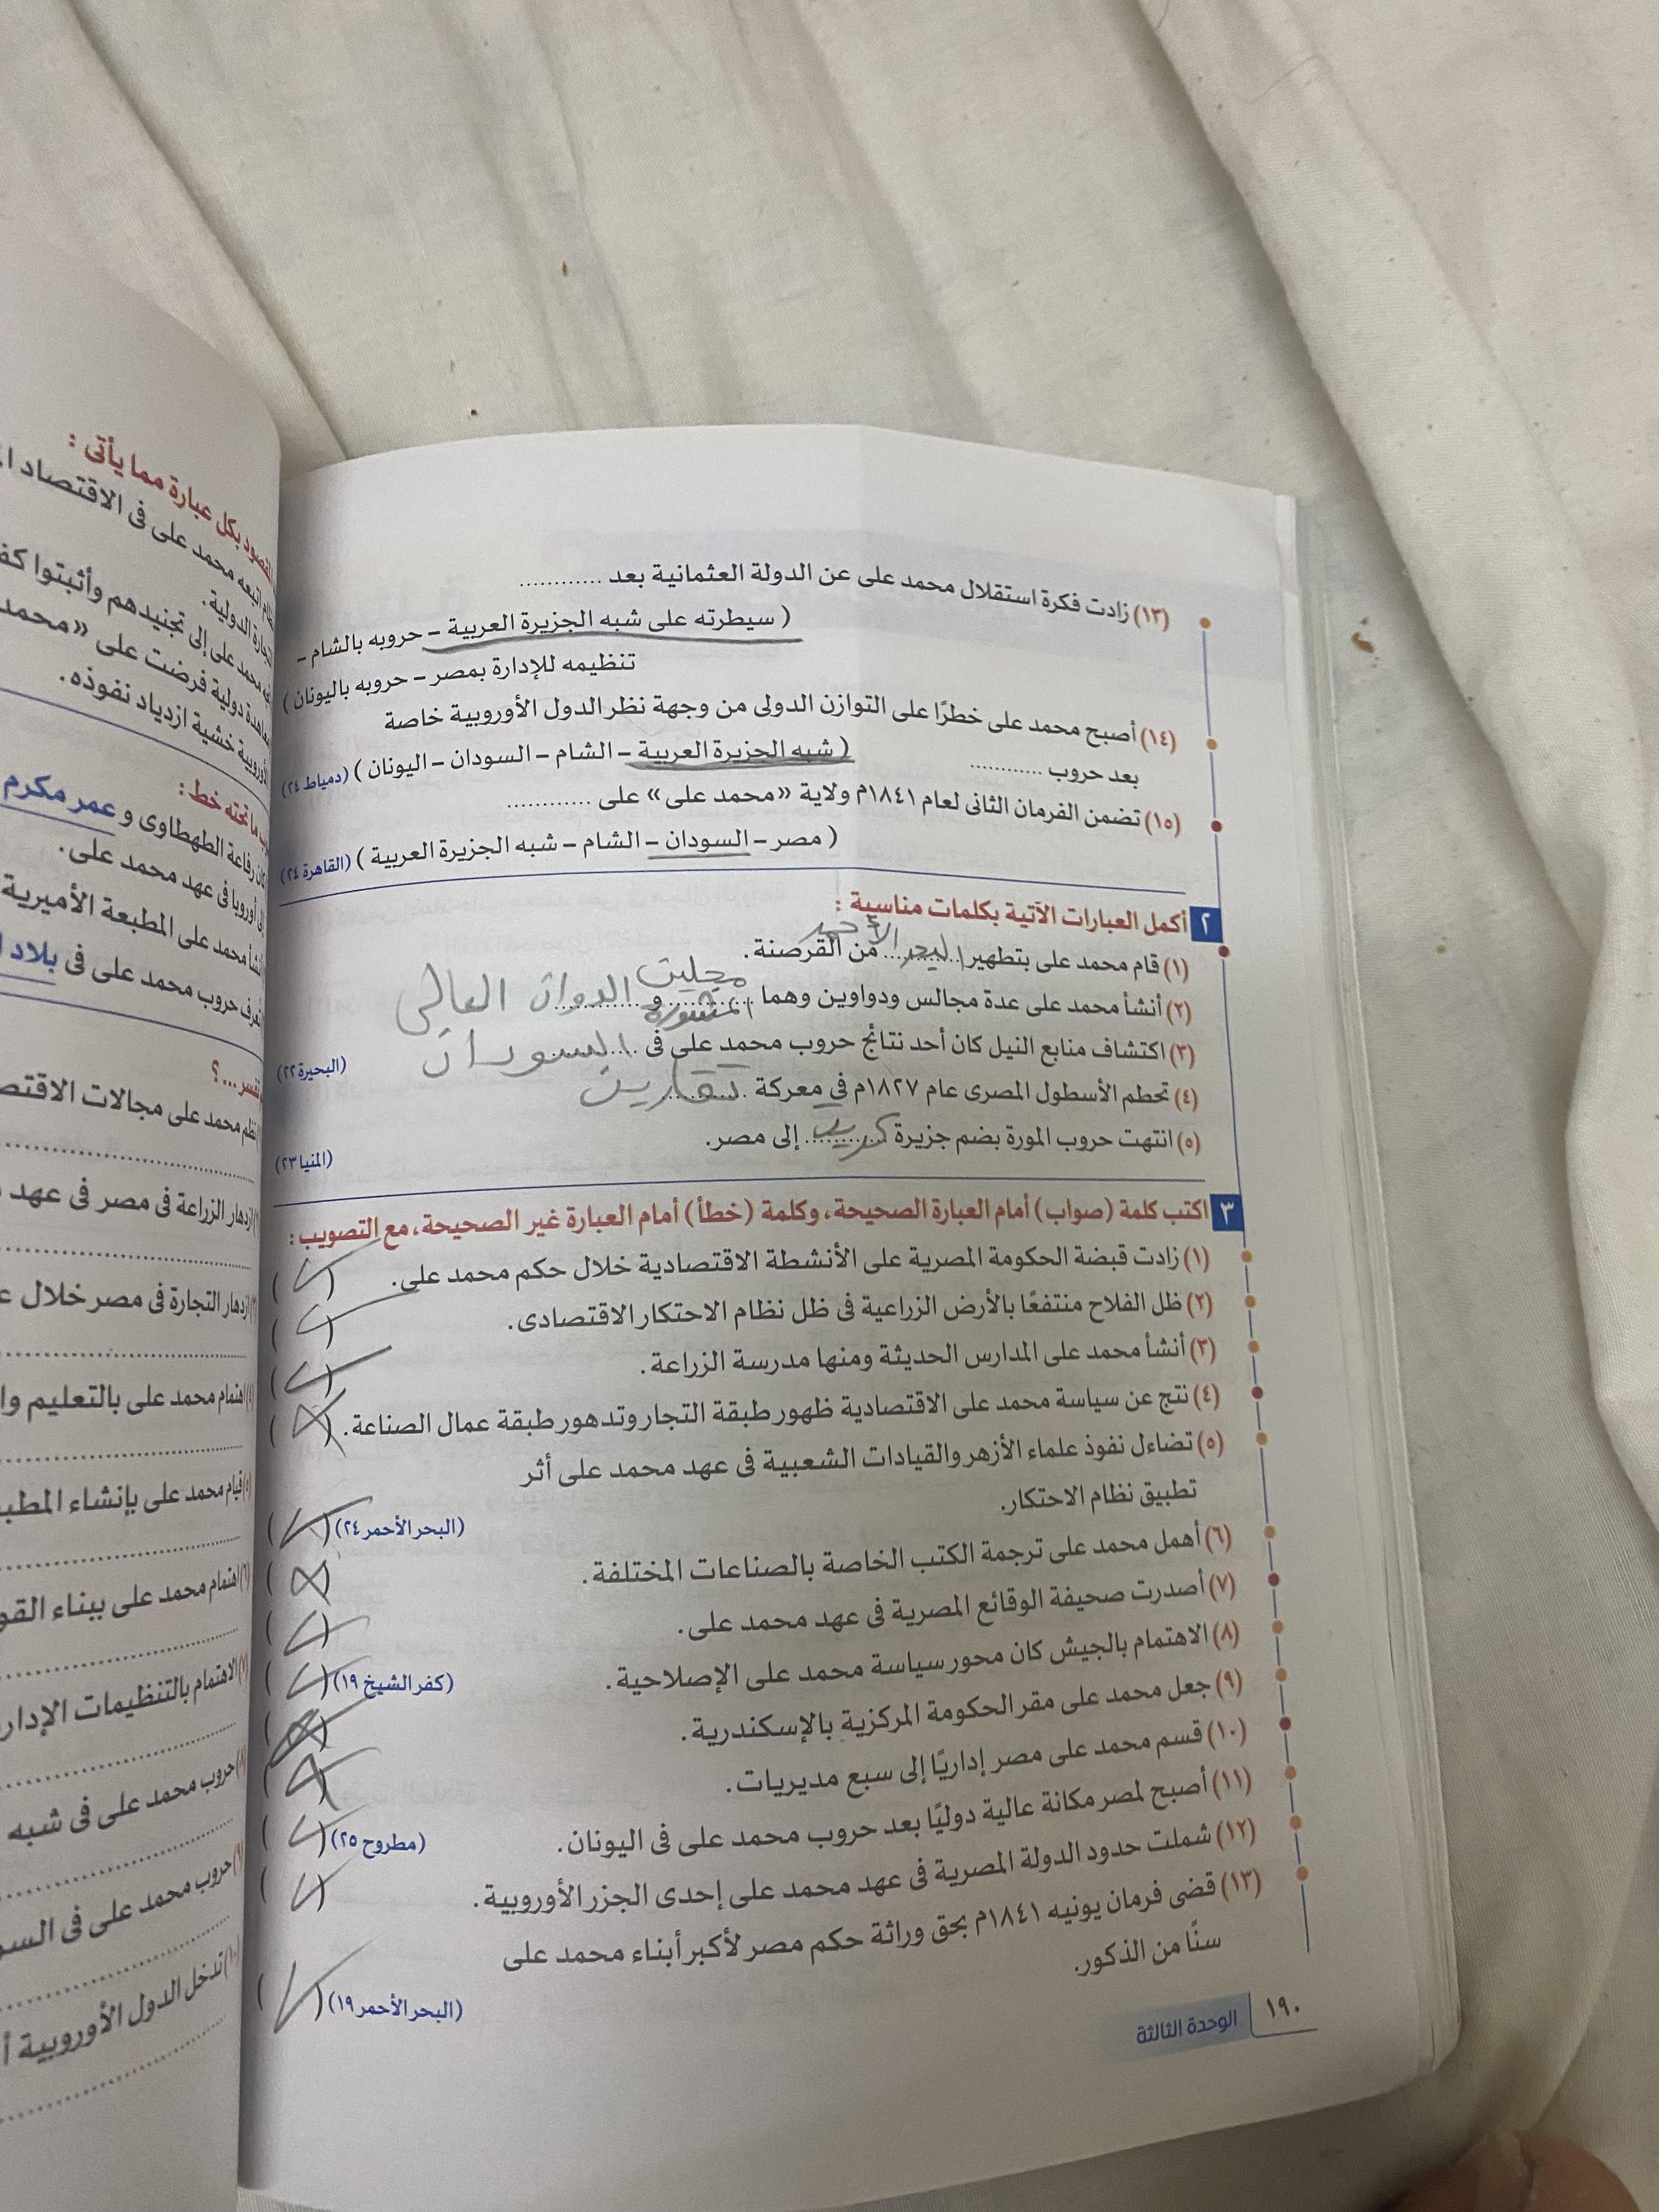 (١٣) زادت فكرة استقلال محمد على عن الدولة العثمانية بعد ............
( سيطرته على شبه الجزيرة العربية – حروبه بالشام –
تنظيمه للإدارة بمصر – حروبه باليونان )
(١٤) أصبح محمد على خطرًا على التوازن الدولى من وجهة نظر الدول الأوروبية خاصة
بعد حروب ............
( شبه الجزيرة العربية – الشام – السودان – اليونان ) (دمياط ٢٤)
(١٥) تضمن الفرمان الثانى لعام ١٨٤١م ولاية «محمد على» على ............
( مصر – السودان – الشام – شبه الجزيرة العربية ) (القاهرة ٢٤)
٢ أكمل العبارات الآتية بكلمات مناسبة :
(١) قام محمد على بتطهير البحر الأحمر من القرصنة.
(٢) أنشأ محمد على عدة مجالس ودواوين وهما مجلس المشورة و الديوان العالى
(٣) اكتشاف منابع النيل كان أحد نتائج حروب محمد على فى السودان (البحيرة ٢٢)
(٤) تحطم الأسطول المصرى عام ١٨٢٧م في معركة
(٥) انتهت حروب المورة بضم جزيرة كريت إلى مصر. (المنيا ٢٣)
٣ اكتب كلمة (صواب) أمام العبارة الصحيحة، وكلمة (خطأ) أمام العبارة غير الصحيحة، مع التصويب :
(١) زادت قبضة الحكومة المصرية على الأنشطة الاقتصادية خلال حكم محمد على. (✓)
(٢) ظل الفلاح منتفعًا بالأرض الزراعية فى ظل نظام الاحتكار الاقتصادى. (✓)
(٣) أنشأ محمد على المدارس الحديثة ومنها مدرسة الزراعة. (✓)
(٤) نتج عن سياسة محمد على الاقتصادية ظهور طبقة التجار وتدهور طبقة عمال الصناعة. (✗)
(٥) تضاءل نفوذ علماء الأزهر والقيادات الشعبية فى عهد محمد على أثر
تطبيق نظام الاحتكار. (البحر الأحمر ٢٤) (✓)
(٦) أهمل محمد على ترجمة الكتب الخاصة بالصناعات المختلفة. (✗)
(٧) أصدرت صحيفة الوقائع المصرية فى عهد محمد على. (✓)
(٨) الاهتمام بالجيش كان محور سياسة محمد على الإصلاحية. (كفر الشيخ ١٩) (✓)
(٩) جعل محمد على مقر الحكومة المركزية بالإسكندرية. (✗)
(١٠) قسم محمد على مصر إداريًا إلى سبع مديريات.
(١١) أصبح لمصر مكانة عالية دوليًا بعد حروب محمد على فى اليونان. (مطروح ٢٥) (✓)
(١٢) شملت حدود الدولة المصرية فى عهد محمد على إحدى الجزر الأوروبية. (✓)
(١٣) قضى فرمان يونيه ١٨٤١م بحق وراثة حكم مصر لأكبر أبناء محمد على
سنًا من الذكور. (البحر الأحمر ١٩) (✓)
١٩٠ الوحدة الثالثة
بكل عبارة مما يأتى :
اتبعه محمد على فى الاقتصاد
الدولية.
محمد على إلى تجنيدهم وأثبتوا
دولية فرضت على «محمد
خشية ازدياد نفوذه.
ما تحته خط :
رفاعة الطهطاوى و عمر مكرم
أوروبا فى عهد محمد على.
محمد على المطبعة الأميرية
حروب محمد على فى بلاد
تفسر ... ؟
نظم محمد على مجالات
ازدهار الزراعة فى مصر فى عهد
ازدهار التجارة فى مصر خلال
اهتمام محمد على بالتعليم
قيام محمد على بإنشاء
اهتمام محمد على ببناء
الاهتمام بالتنظيمات
حروب محمد على فى شبه
حروب محمد على فى
تدخل الدول الأوروبية